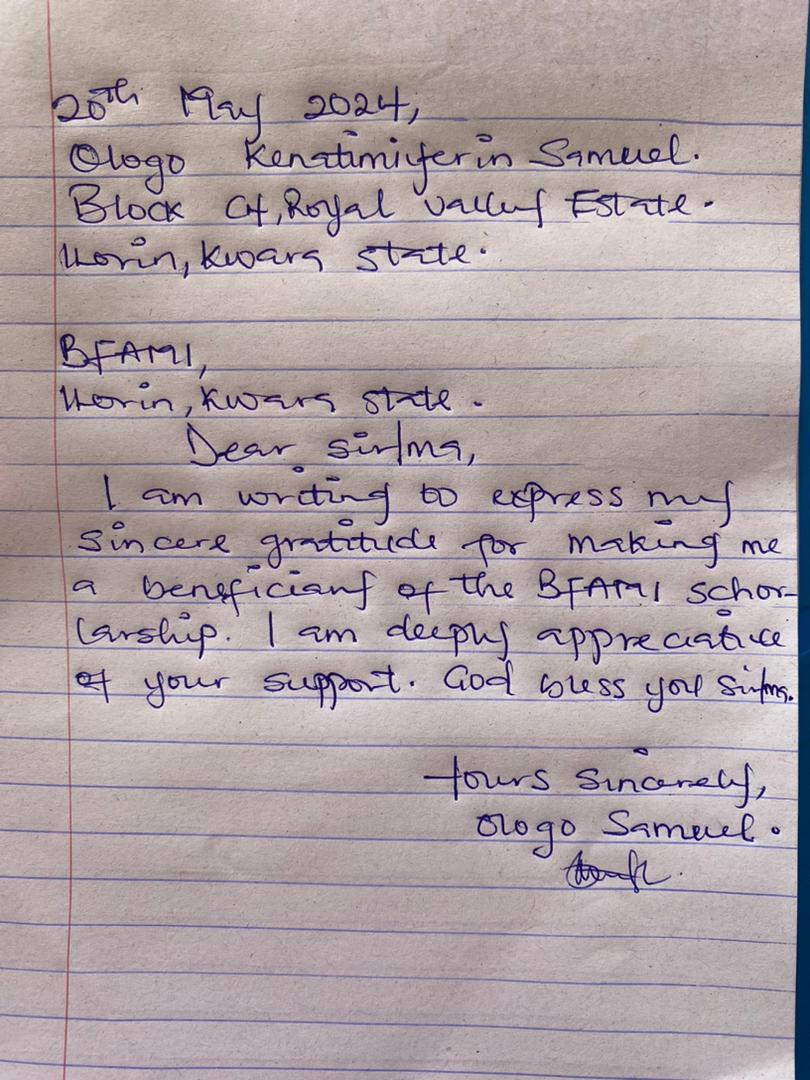 20th May 2024,
Ologo Kenatimiferin Samuel.
Block C4, Royal Valley Estate.
Ilorin, Kwara state.
BFAMI,
Ilorin, Kwara state.
Dear sir/ma,
I am writing to express my
sincere gratitude for making me
a beneficiary of the BFAMI schor-
larship. I am deeply appreciative
of your support. God bless you sir/ma.
Yours Sincerely,
Ologo Samuel.